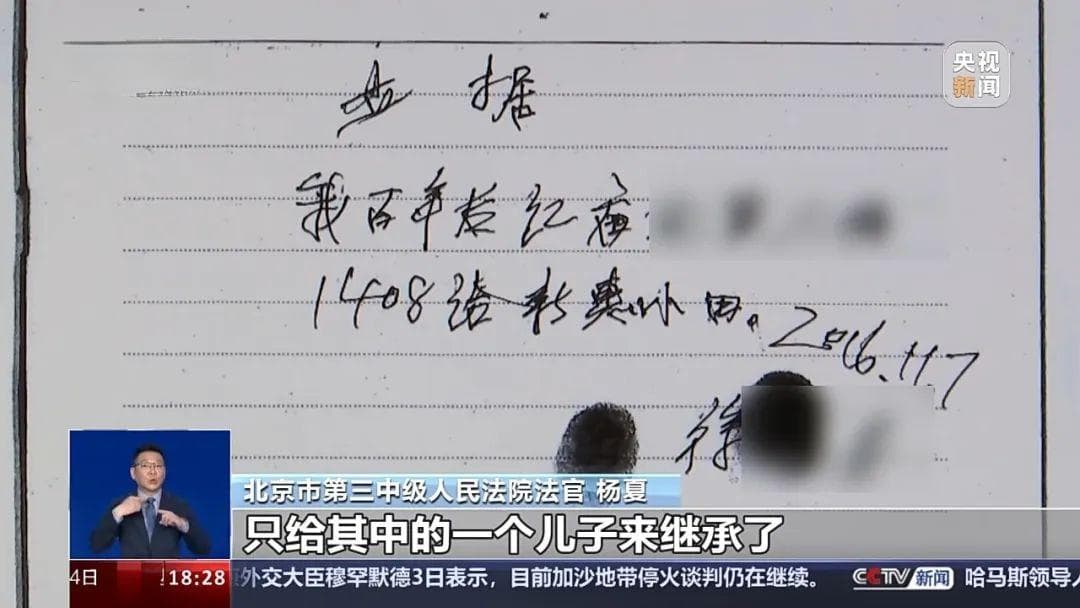 央视
新闻
据
我百年后红庙
1408给
2016.11.7
徐
北京市第三中级人民法院法官 杨夏
只给其中的一个儿子来继承了
4日 18:28 外交大臣穆罕默德3日表示，目前加沙地带停火谈判仍在继续。 CCTV新闻 哈马斯领导人